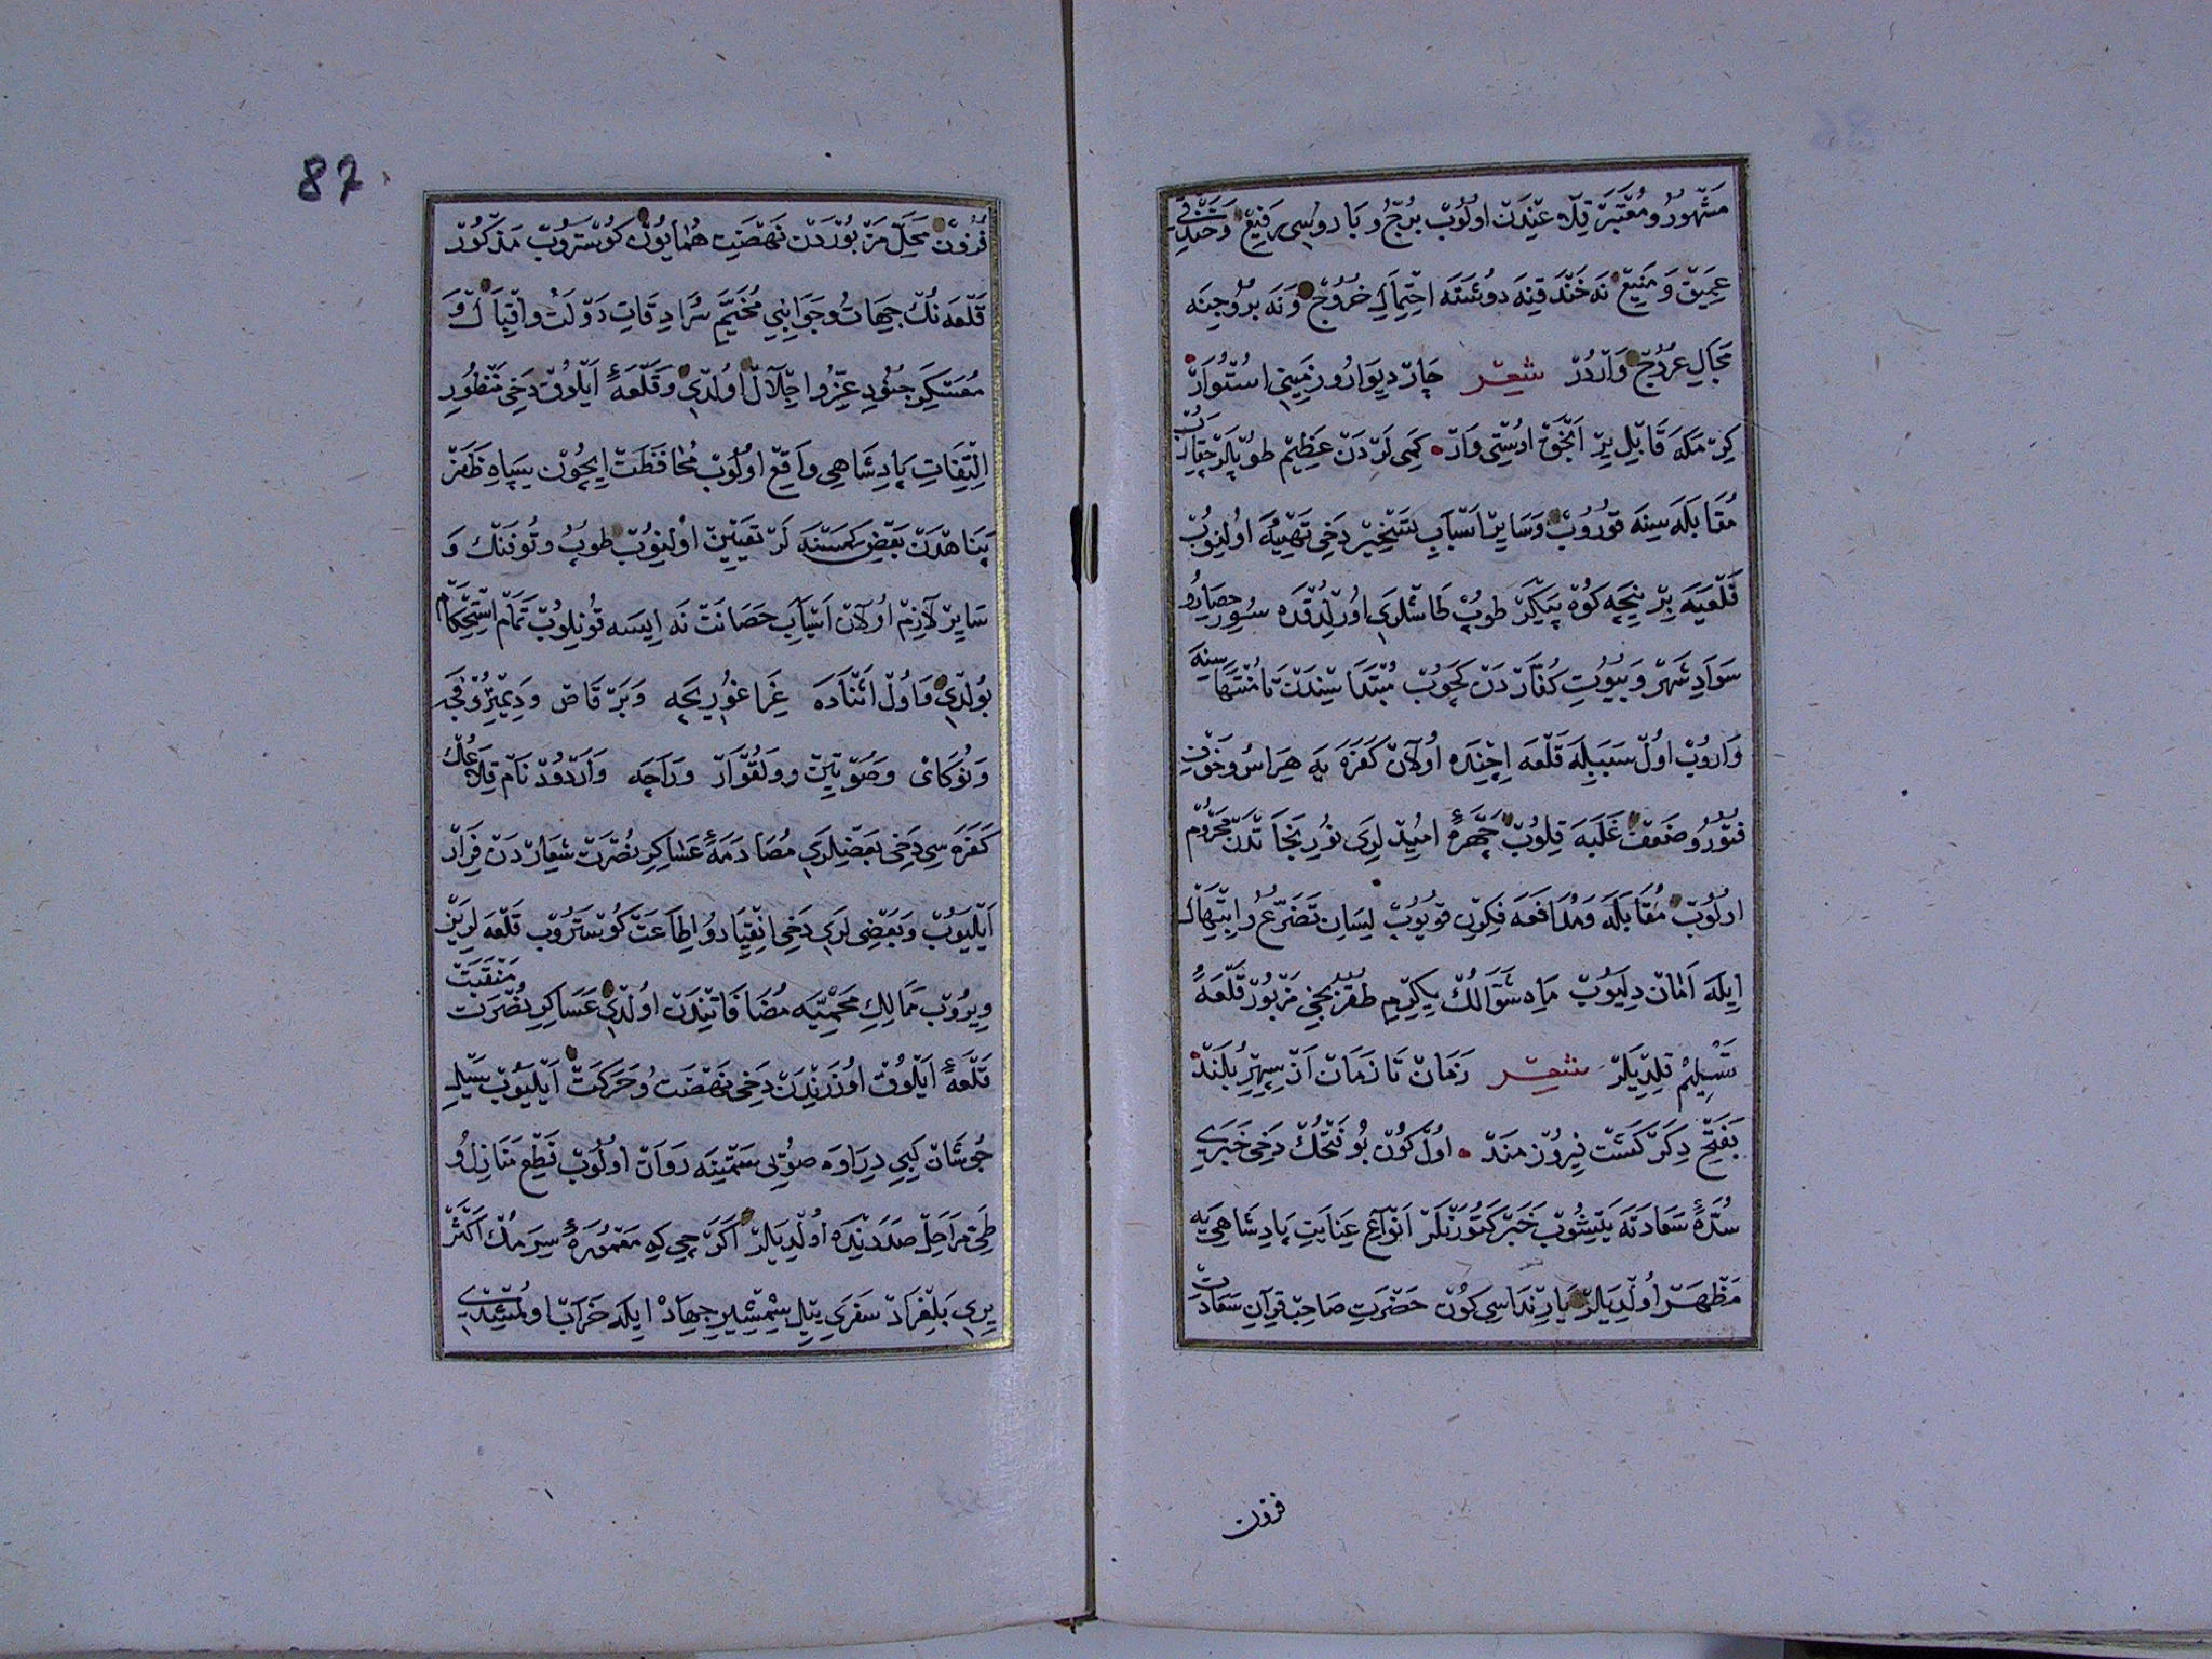 مشهور و معتبر قلاعیندن اولوب برج و باروسی رفیع و خندقی
عمیق و منیع نه خندقنه دوشنه احتمال خروج و نه بروجنه
مجال عروج واردر شعر چار دیوار و زمینی استوار
کرمکه قابل یر انجق اوستی وار کمی لردن عظیم طوپلر چقارلب
مقابله سینه قوروب و سایر اسباب تسخیر دخی تهیه اولنوب
قلعیه بر نیجه کوه پیکر طوپ طاشلری اورلدقده سور حصار و
سواد شهر و بیوت کفاردن کچوب مبتداسیندن تا منتهاسینه
واروب اول سببیله قلعه ایچنده اولان کفره یه هراس و خوف
فتور و ضعف غلبه قلوب چهرهٔ امید لری نور نجاتدن محروم
اولوب مقابله و مدافعه فکرن قویوب لسان تضرع و ابتهال
ایله امان دلیوب ماه شوالک یکرمی طقزنجی مزبور قلعهٔ
تسلیم قلدیلر شعر زمان تا زمان از سپهر بلند
بفتح دکر کشت فیروزمند اول کون بو فتحک دخی خبری
سدهٔ سعادته یتیشوب خبر کتورنلر انواع عنایت پادشاهی یه
مظهر اولدیلر یارنداسی کون حضرت صاحب قران سعادت
فزون
87
فزون محل مزبوردن نهضت همایون کوستروب مذکور
قلعه نک جهات و جوانبی مخیم سرادقات دولت و اقبال و
معسکر جنود عز و اجلال اولدی و قلعهٔ ایلوق دخی منظور
التفات پادشاهی واقع اولوب محافظت ایچون سپاه ظفر
پناهدن بعض کمسنه لر تعیین اولنوب طوپ و توفنک و
سایر لازم اولان اسباب حصانت نه ایسه قونیلوب تمام استحکام
بولدی و اول اثناده غراغوریجه و برقاص و دیمتروفجه
و نوکای و صوتین و ولقوار و راچه و اردود نام قلاعک
کفره سی دخی بعضیلری مصادمهٔ عساکر نصرت شعاردن فرار
ایلیوب و بعضی لری دخی انقیاد و اطاعت کوستروب قلعه لرین
ویروب ممالک محمیه مضافاتیندن اولدی عساکر نصرت منقبت
قلعهٔ ایلوق اوزریندن دخی نهضت و حرکت ایلیوب سیل
جوشان کبی دراوه صویی سمتینه روان اولوب قطع منازل و
طی مراحل صددنده اولدیلر اکرچی که معمورهٔ سرمک اکثر
یری بلغراد سفری ییل شمشیر جهاد ایله خراب اولمشیدی